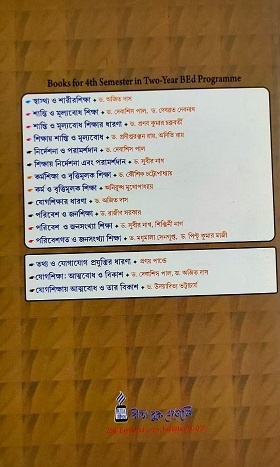 Books for 4th Semester in Two-Year BEd Programme
স্বাস্থ্য ও শারীরশিক্ষা • ড. অজিত দাস
শান্তি ও মূল্যবোধ শিক্ষা • ড. দেবাশিস পাল, ড. দেবব্রত দেবনাথ
শান্তি ও মূল্যবোধ শিক্ষার ধারণা • ড. প্রণব কুমার চক্রবর্তী
শিক্ষায় শান্তি ও মূল্যবোধ • ড. রায়, অদিতি রায়
নির্দেশনা ও পরামর্শদান • ড. দেবাশিস পাল
শিক্ষায় নির্দেশনা এবং পরামর্শদান • ড. সুবীর নাগ
কর্মশিক্ষা ও বৃত্তিমূলক শিক্ষা • ড. কৌশিক চট্টোপাধ্যায়
কর্ম ও বৃত্তিমূলক শিক্ষা • অনিরুদ্ধ মুখোপাধ্যায়
যোগশিক্ষার ধারণা • ড. অজিত দাস
পরিবেশ ও জনশিক্ষা • ড. রাজীব সরকার
পরিবেশ ও জনসংখ্যা শিক্ষা • ড. সুবীর নাগ, গিনি নাগ
পরিবেশগত ও জনসংখ্যা শিক্ষা • ড. মধুমালা সেনগুপ্ত, ড. পিন্টু কুমার মাজী
তথ্য ও যোগাযোগ প্রযুক্তির ধারণা • প্রণয় পান্ডে
যোগশিক্ষা: আত্মবোধ ও বিকাশ • ড. দেবাশিস পাল, ড. অজিত দাস
যোগশিক্ষায় আত্মবোধ ও তার বিকাশ • ড. উদয়াদিত্য ভট্টাচার্য
রীতা বুক এজেন্সি